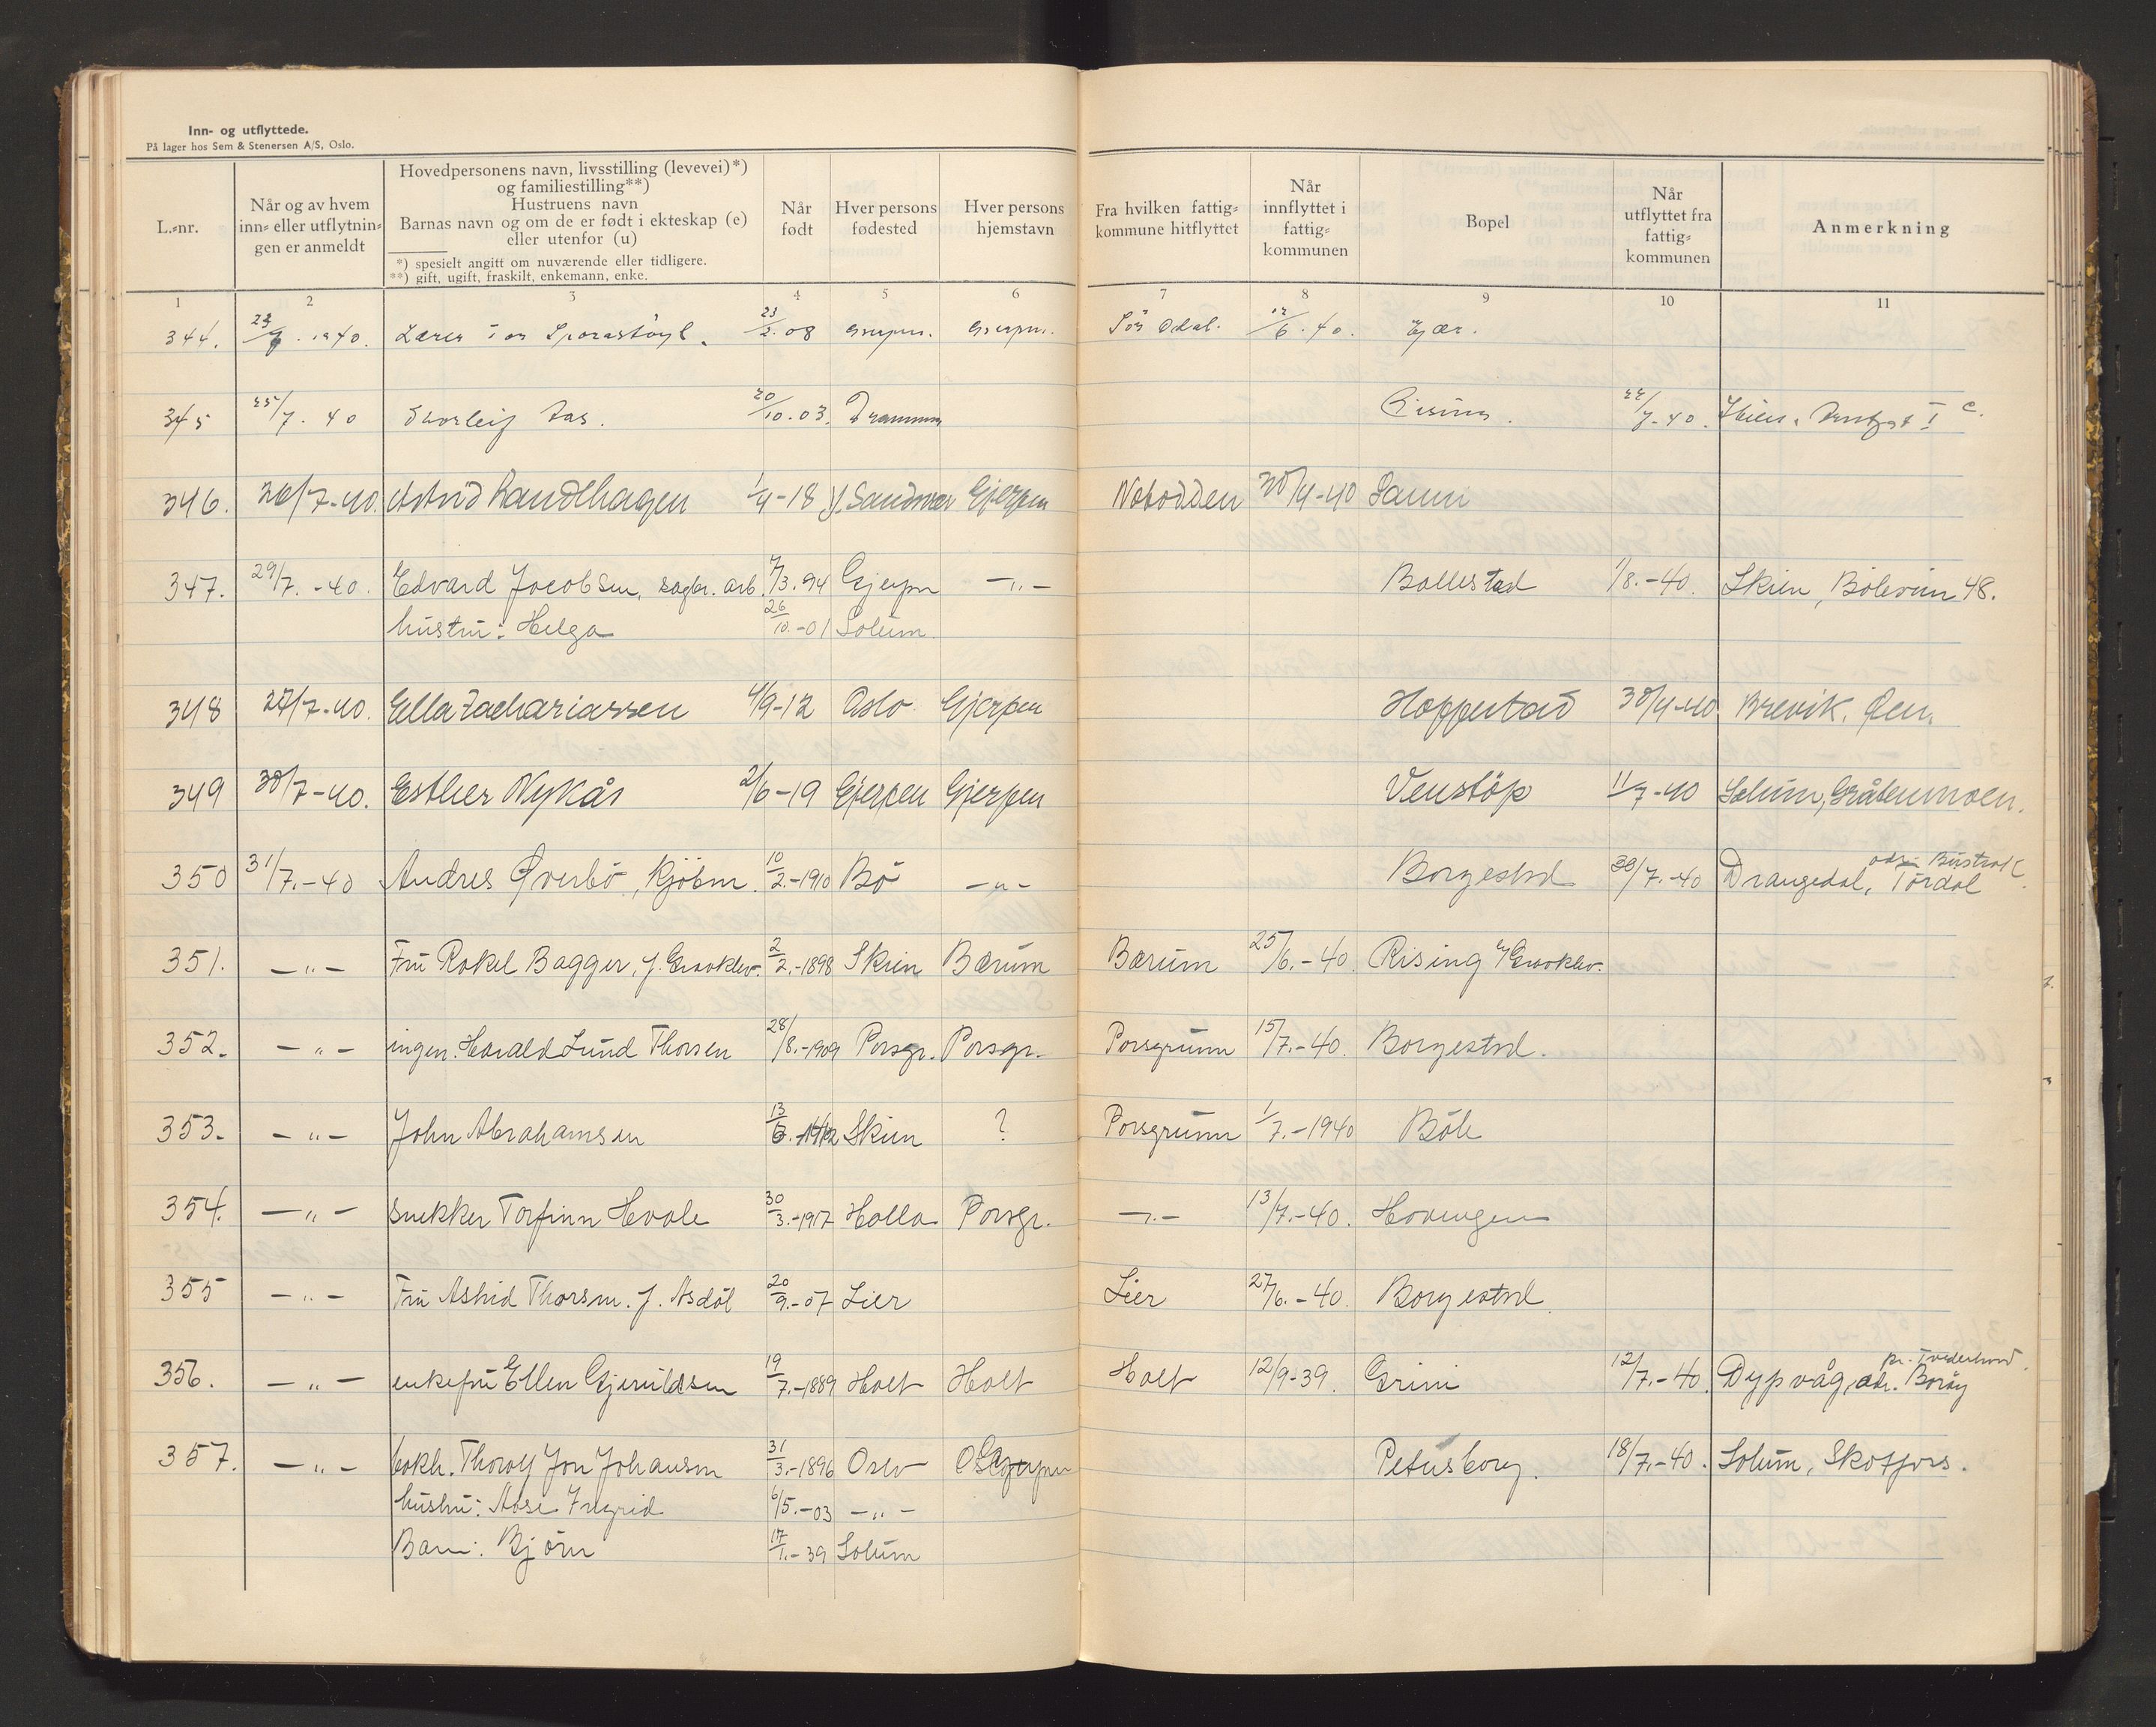 Inn- og utflyttede.
På lager hos Sem & Stenersen A/S, Oslo.
L.-nr. Når og av hvem inn- eller utflytnin-gen er anmeldt Hovedpersonens navn, livsstilling (levevei)*) og familiestilling**) Hustruens navn Barnas navn og om de er født i ekteskap (e) eller utenfor (u) Når født Hver persons fødested Hver persons hjemstavn Fra hvilken fattig-kommune hitflyttet Når innflyttet i fattig-kommunen Bopel Når utflyttet fra fattig-kommunen Anmerkning
*) spesielt angitt om nuværende eller tidligere.
**) gift, ugift, fraskilt, enkemann, enke.
1 2 3 4 5 6 7 8 9 10 11
344. 1940. Lærer Tor 23/2.08 Gjerpen. Gjerpen. Sör Odal. 12/6.40.
345 25/7.40 Thorleif Aas. 20/10.03. Drammen Rising. 22/7-40. Skien, I c.
346. 26/7-40. Astrid Landlhagen 1/4-18 Y. Sandsvær Gjerpen Notodden 20/4-40 Saum
347. 29/7.-40. Edvard Jocobsen, sagbr. arb. 7/3.94 Gjerpn —"— Bollestad 1/8.-40. Skien, Bölevein 48.
hustru: Helga 26/10.-01 Solum
348 27/7-40. Ella Zachariassen 4/9-12 Oslo Gjerpen Hoppestad 30/4-40 Brevik.
349 30/7-40. Esther Nykås 2/6-19 Gjerpen Gjerpen Venstöp 11/7-40 Solum, Gråtenmoen.
350 31/7.-40 Andres Øverbö, Kjöbm. 10/2.-1910 Bö —"— Borgestad 30/7.-40 Drangedal, Tördal
351. —"— Fru Rakel Bagger, f. Graaklev. 2/2.-1898 Skien Bærum Bærum 25/6.-40. Rising Graaklev.
352. —"— ingen. Harald Lund Thorsen 28/8.-1909 Porsgr. Porsgr. Porsgrunn 15/7.-40. Borgestad.
353. —"— John Abrahamsen Skien ? Porsgrunn 1/7.-1940 Böle
354. —"— snekker Torfinn Hvale 30/3.-1917 Holla Porsgr. —"— 13/7.-40. Hovengen
355 —"— Fru Astrid Thorsen. f. Asdöl 20/9.-07 Lier Lier 27/6.-40. Borgestad.
356. —"— enkefru Ellen Gjeruldsen 19/7.-1889 Holt Holt Holt 12/9-39. Grini 12/7.-40. Dypvåg, adr. Boröy pr. Tvedestrand.
357. —"— bokh. Thorolf Jon Johansen 31/3.-1896 Oslo Gjerpen Petersborg. 18/7.-40. Solum, Skotfoss.
hustru: Aase Ingrid 6/5.-03 —"—
Barn: Björn 17/1.-39 Solum